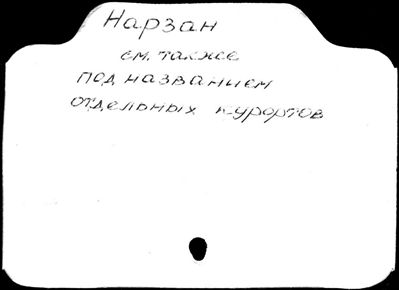 Нарзан
см. также
под названием
отдельных курортов